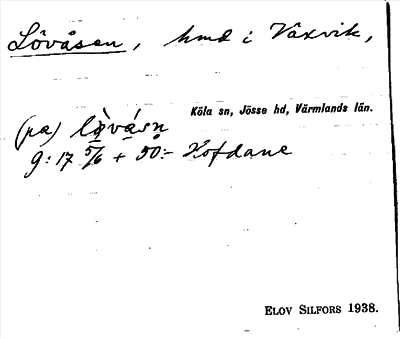 Lövåsen, hmd i Växvik,
Köla sn, Jösse hd, Värmlands län.
(pa) lövåsn
9:17 5/6 + 50:- Hofdane
ELOV SILFORS 1938.